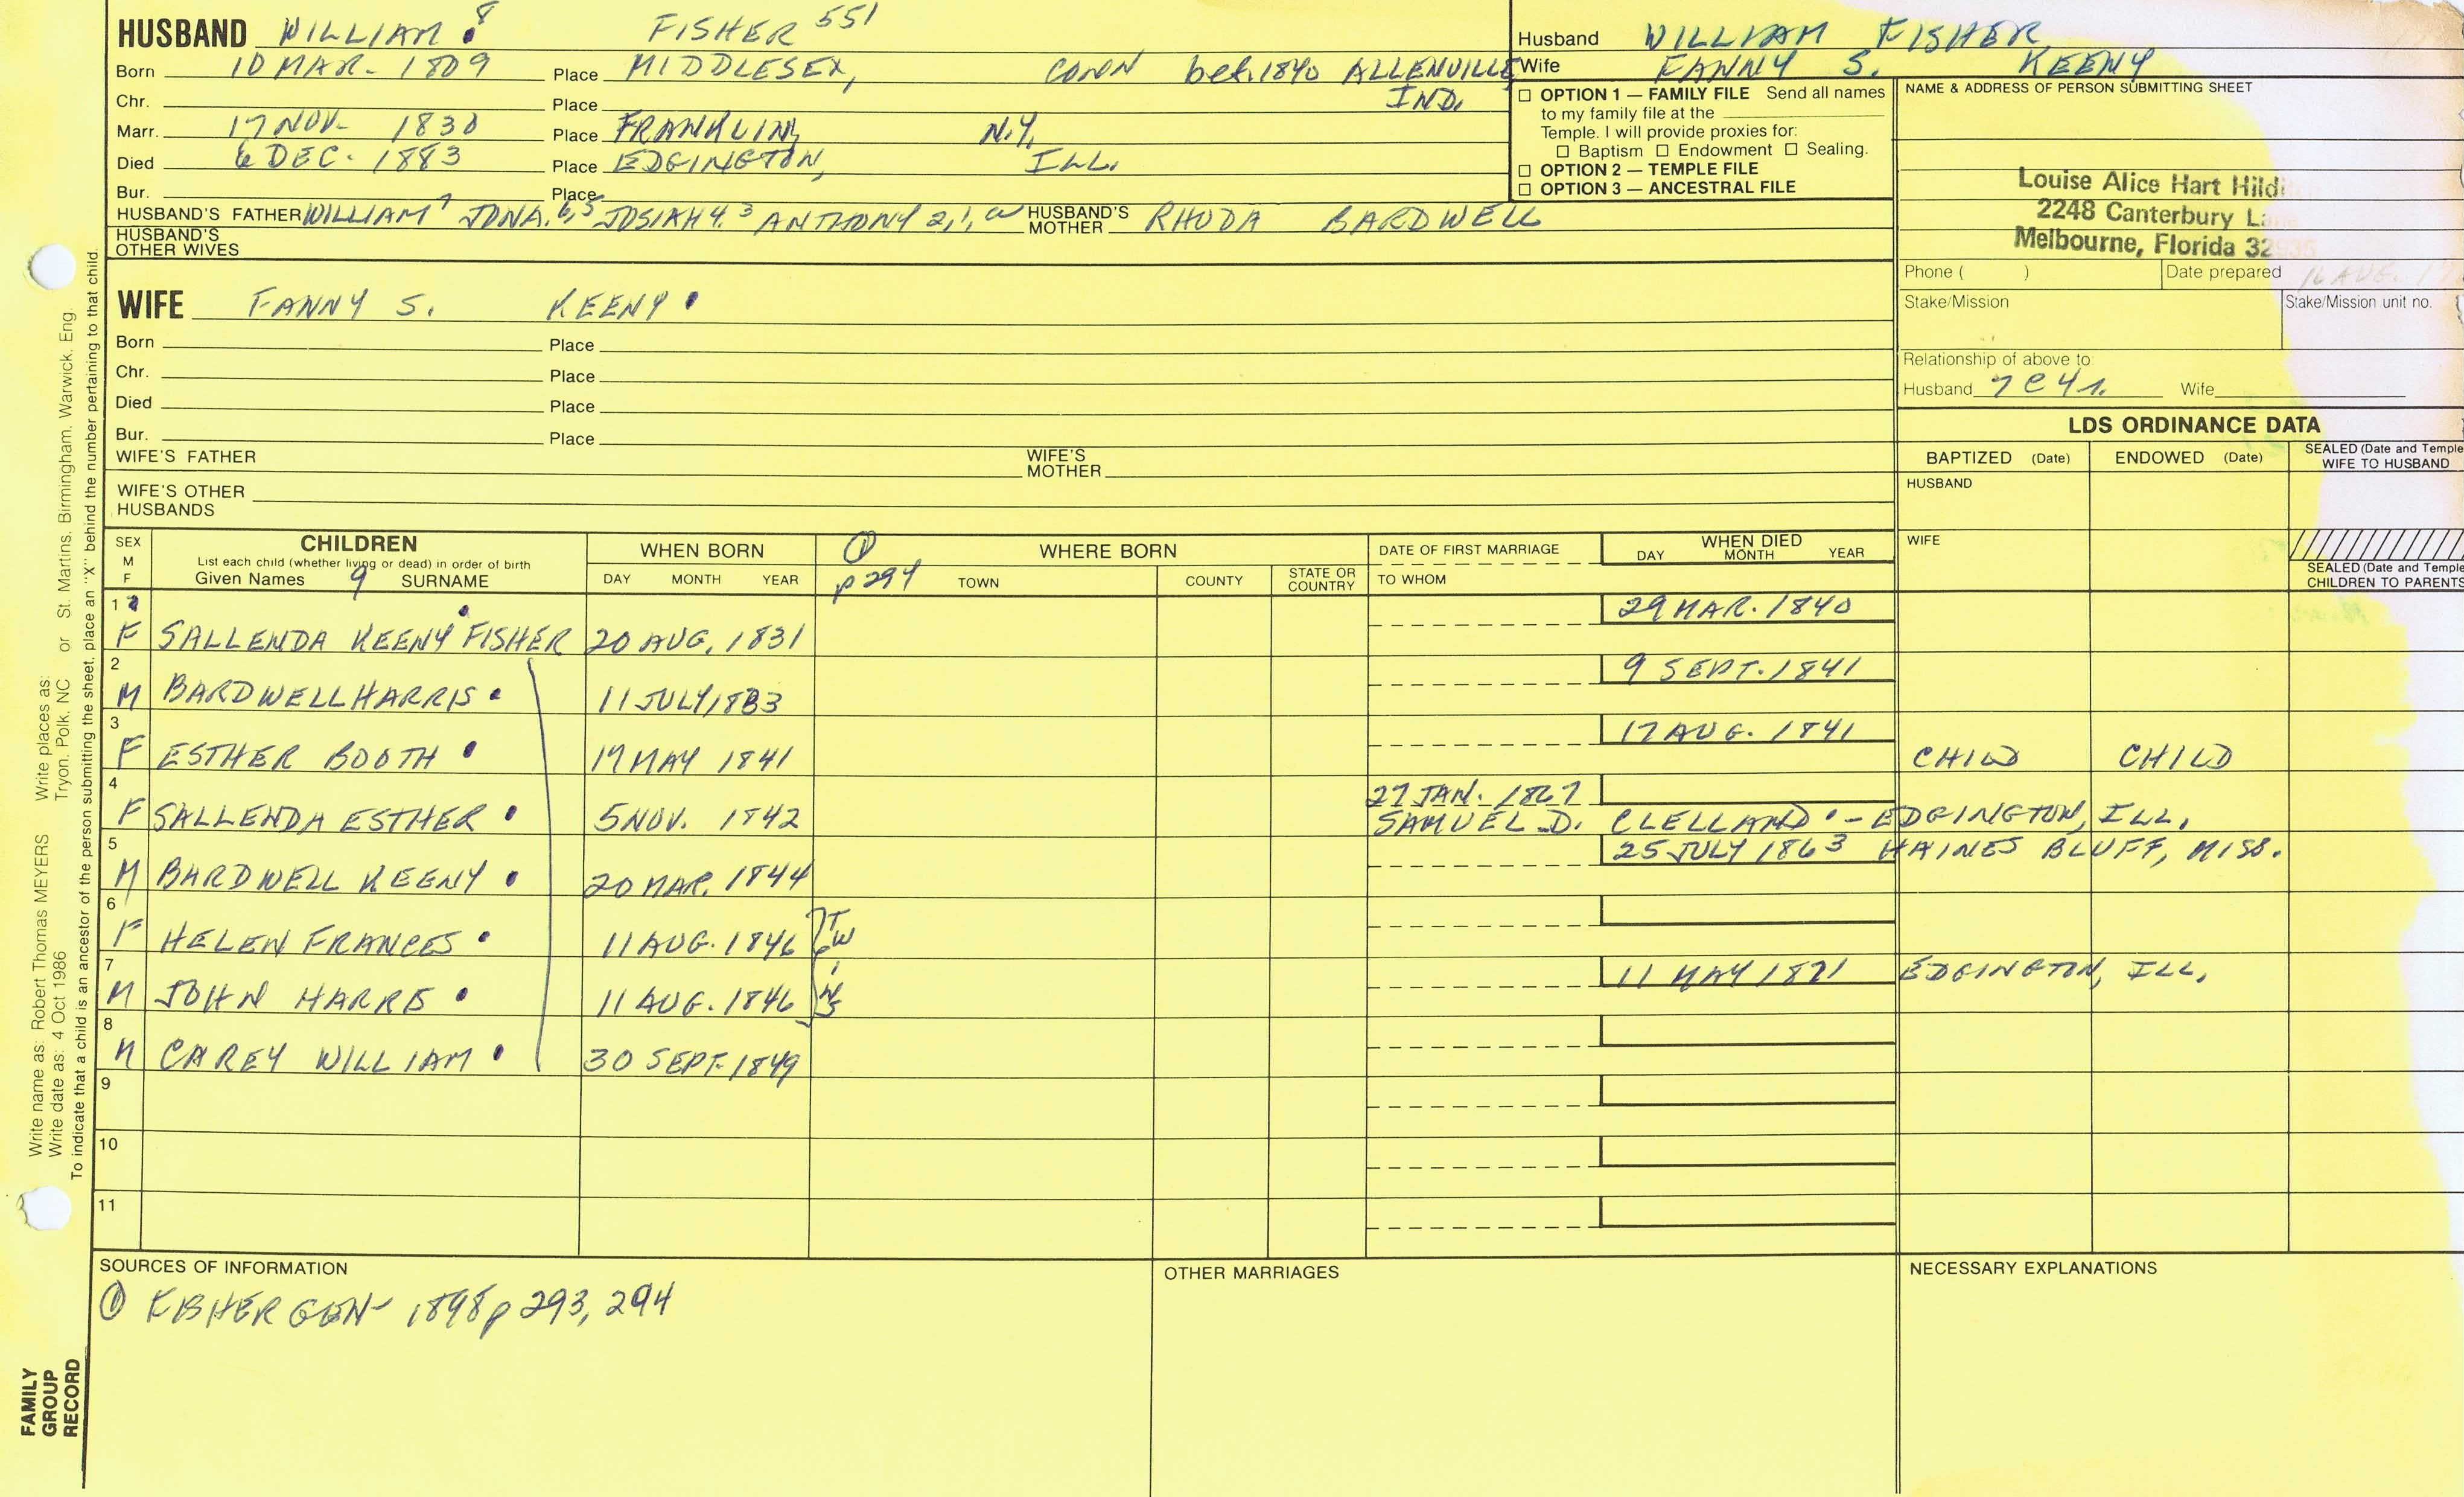 HUSBAND WILLIAM 8 FISHER 551
Born 10 MAR. 1809 Place MIDDLESEX, CONN bef. 1840 ALLENVILLE IND.
Chr. Place
Marr. 17 NOV. 1830 Place FRANKLIN, N.Y.
Died 6 DEC. 1883 Place EDGINGTON, ILL.
Bur. Place
HUSBAND'S FATHER WILLIAM 7 JONA. 6,5 JOSIAH 4. 3 ANTHONY 2,1, HUSBAND'S MOTHER RHODA BARDWELL
HUSBAND'S OTHER WIVES
Husband WILLIAM FISHER
Wife FANNY S. KEENY
OPTION 1 — FAMILY FILE Send all names
to my family file at the
Temple. I will provide proxies for:
Baptism Endowment Sealing.
OPTION 2 — TEMPLE FILE
OPTION 3 — ANCESTRAL FILE
NAME & ADDRESS OF PERSON SUBMITTING SHEET
Louise Alice Hart
2248 Canterbury
Melbourne, Florida
Phone ( ) Date prepared 16 AUG.
Stake/Mission Stake/Mission unit no.
Relationship of above to:
Husband 7C4r. Wife
WIFE FANNY S. KEENY
Born Place
Chr. Place
Died Place
Bur. Place
WIFE'S FATHER WIFE'S MOTHER
WIFE'S OTHER HUSBANDS
LDS ORDINANCE DATA
BAPTIZED (Date) ENDOWED (Date) SEALED (Date and Temple) WIFE TO HUSBAND
HUSBAND
WIFE
SEALED (Date and Temple) CHILDREN TO PARENTS
SEX M F
CHILDREN
List each child (whether living or dead) in order of birth
Given Names 9 SURNAME
WHEN BORN
DAY MONTH YEAR
① p 294
WHERE BORN
TOWN COUNTY STATE OR COUNTRY
DATE OF FIRST MARRIAGE
TO WHOM
WHEN DIED
DAY MONTH YEAR
1 29 MAR. 1840
F SALLENDA KEENY FISHER 20 AUG. 1831
2 9 SEPT. 1841
M BARDWELL HARRIS 11 JULY 1833
3 17 AUG. 1841
F ESTHER BOOTH 17 MAY 1841 CHILD CHILD
4 27 JAN. 1867
F SALLENDA ESTHER 5 NOV. 1842 SAMUEL D. CLELLAND - EDGINGTON, ILL.
5 25 JULY 1863 HAINES BLUFF, MISS.
M BARDWELL KEENY 20 MAR. 1844
6
F HELEN FRANCES 11 AUG. 1846 TWINS
7 11 MAY 1871 EDGINGTON, ILL.
M JOHN HARRIS 11 AUG. 1846
8
M CAREY WILLIAM 30 SEPT. 1849
9
10
11
SOURCES OF INFORMATION
① FISHER GEN- 1898 p 293, 294
OTHER MARRIAGES
NECESSARY EXPLANATIONS
Write name as: Robert Thomas MEYERS Write places as: St. Martins, Birmingham, Warwick, Eng.
Write date as: 4 Oct 1986 Tryon, Polk, NC or
To indicate that a child is an ancestor of the person submitting the sheet, place an "X" behind the number pertaining to that child.
FAMILY
GROUP
RECORD